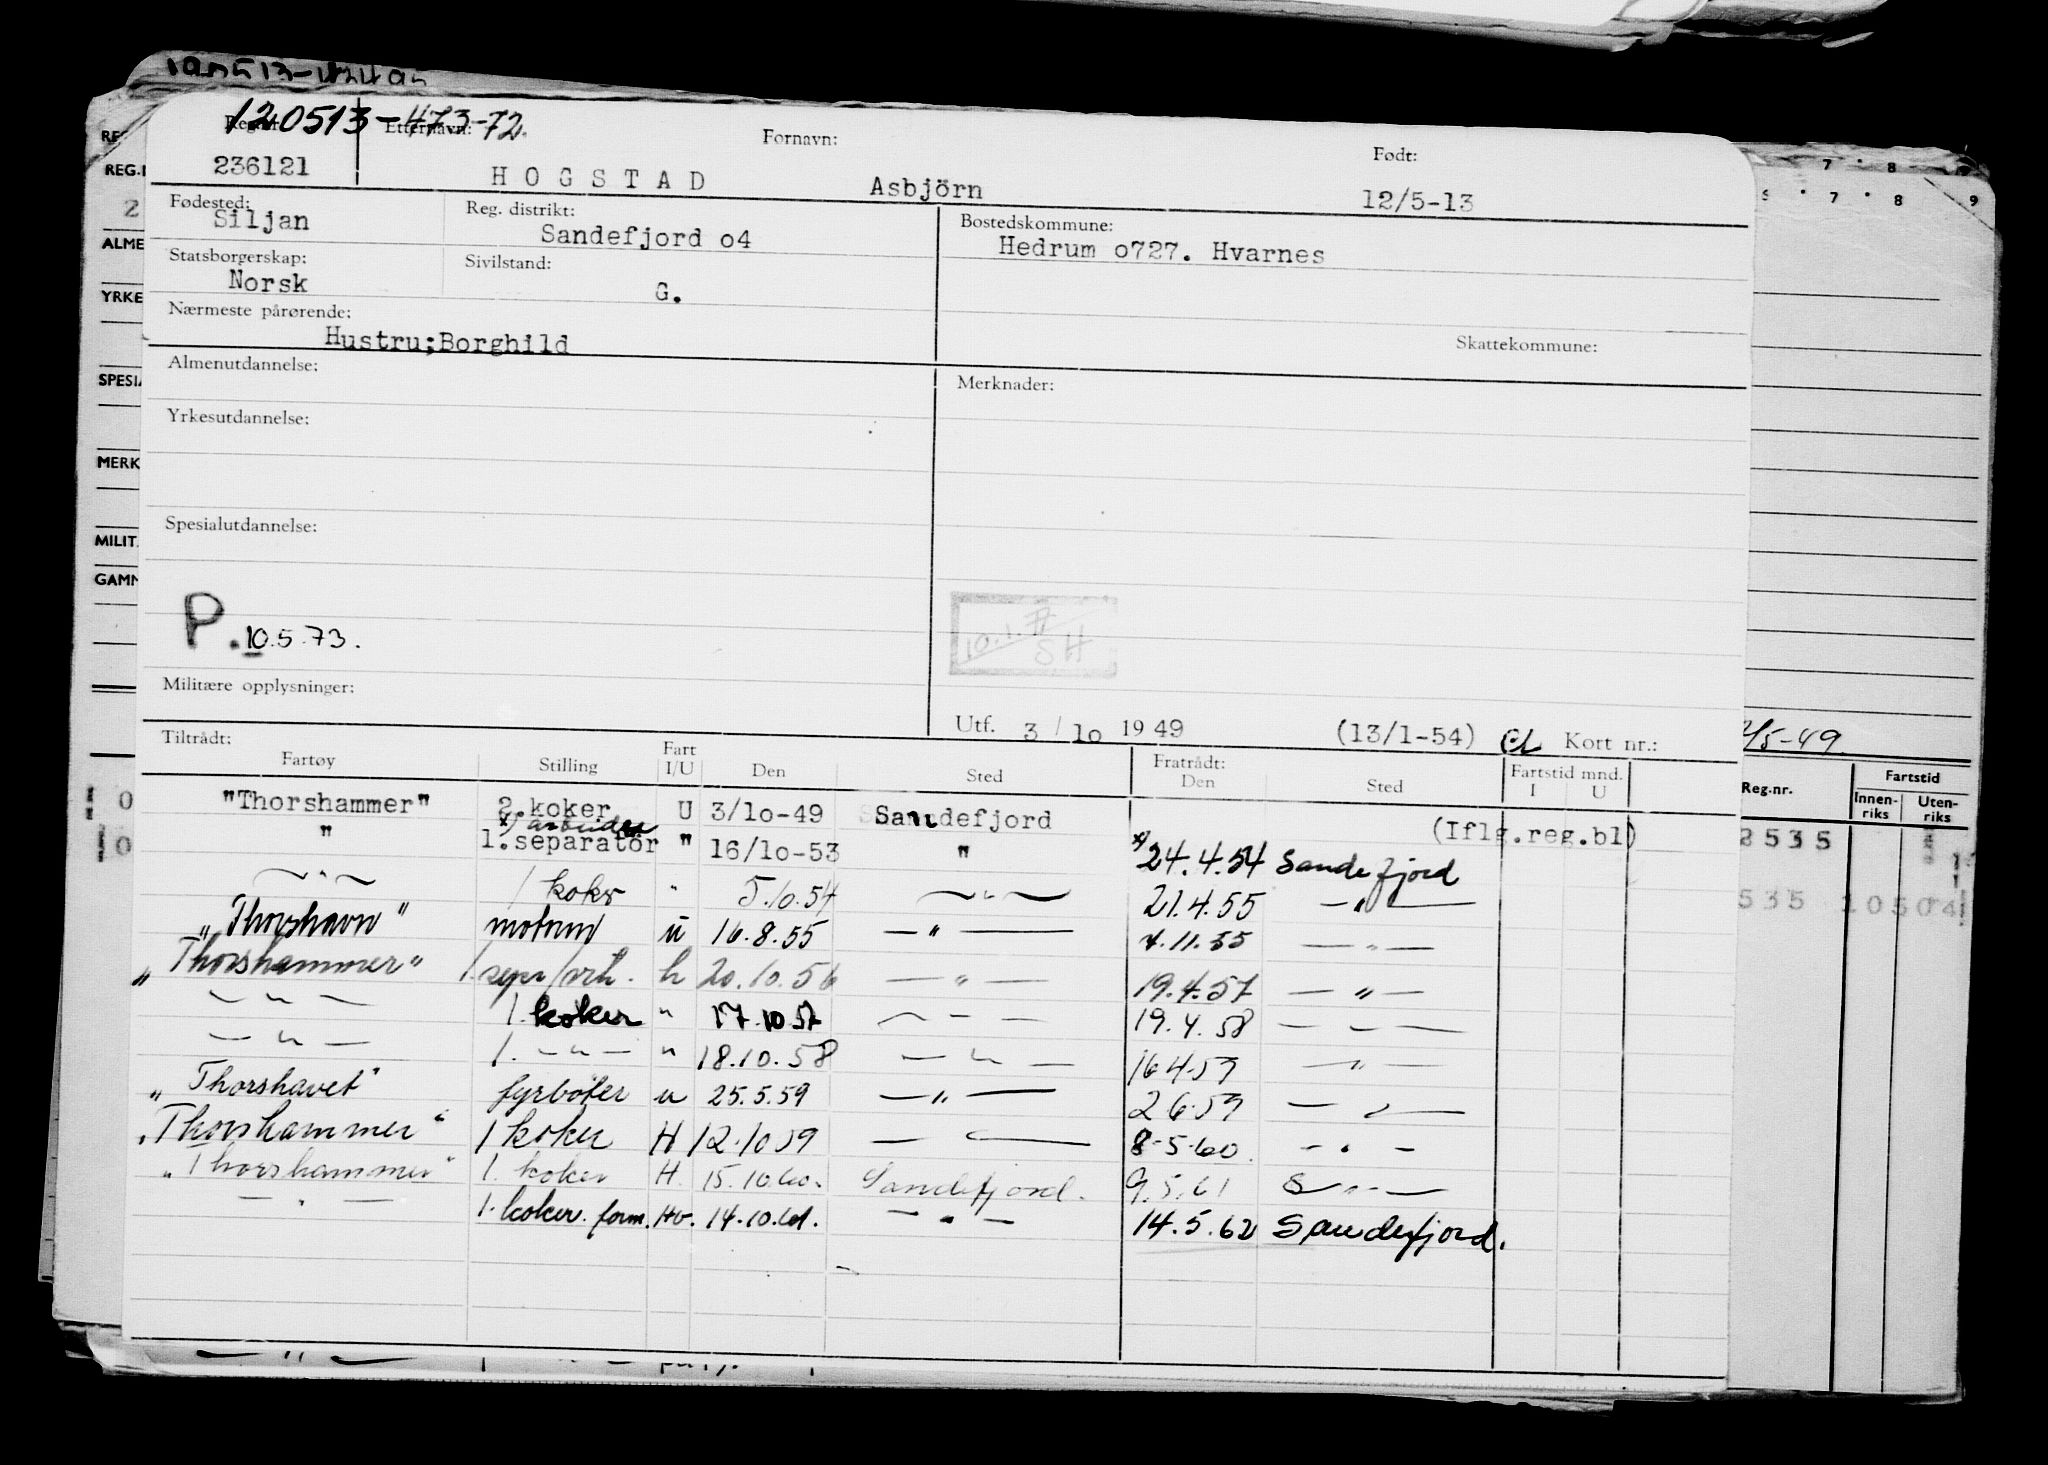 120513-473-72
Regnr. Etternavn: Fornavn: Født:
236121 HOGSTAD Asbjörn 12/5-13
Fødested: Reg. distrikt: Bostedskommune:
Siljan Sandefjord o4 Hedrum o727. Hvarnes
Statsborgerskap: Sivilstand:
Norsk G.
Nærmeste pårørende: Skattekommune:
Hustru;Borghild
Almenutdannelse: Merknader:
Yrkesutdannelse:
Spesialutdannelse:
P. 10.5.73.
SH
Militære opplysninger:
Utf. 3/1o 1949 (13/1-54) Kort nr.:
Tiltrådt: Fratrådt:
Fartøy Stilling Fart I/U Den Sted Den Sted Fartstid mnd. I U
"Thorshammer" 2.koker U 3/1o-49 Sandefjord
x) arbeider (Iflg.reg.bl)
" 1.separatør " 16/1o-53 " x) 24.4.54 Sandefjord
— " — 1 koker " 5.10.54 — " — 21.4.55 — " —
"Thorshavn" motorm u 16.8.55 — " — 4.11.55 — " —
"Thorshammer" 1. sepr/arb. h 20.10.56 — " — 19.4.57 — " —
— " — 1. koker " 17.10.57 — " — 19.4.58 — " —
— " — 1. — " — " 18.10.58 — " — 16.4.59 — " —
"Thorshavet" fyrbøter u 25.5.59 — " — 2.6.59 — " —
"Thorshammer" 1 koker H 12.10.59 — " — 8-5-60. — " —
"Thorshammer" 1. koker H. 15.10.60. Sandefjord. 9.5.61 S — " —
— " — 1. koker. form. Hv. 14.10.61. — " — 14.5.62 Sandefjord.
REG.
ALME
YRKE
SPESIA
MERK
MILIT.
GAMM
/5-49
Reg.nr. Fartstid
Innenriks Utenriks
2535
535 10504